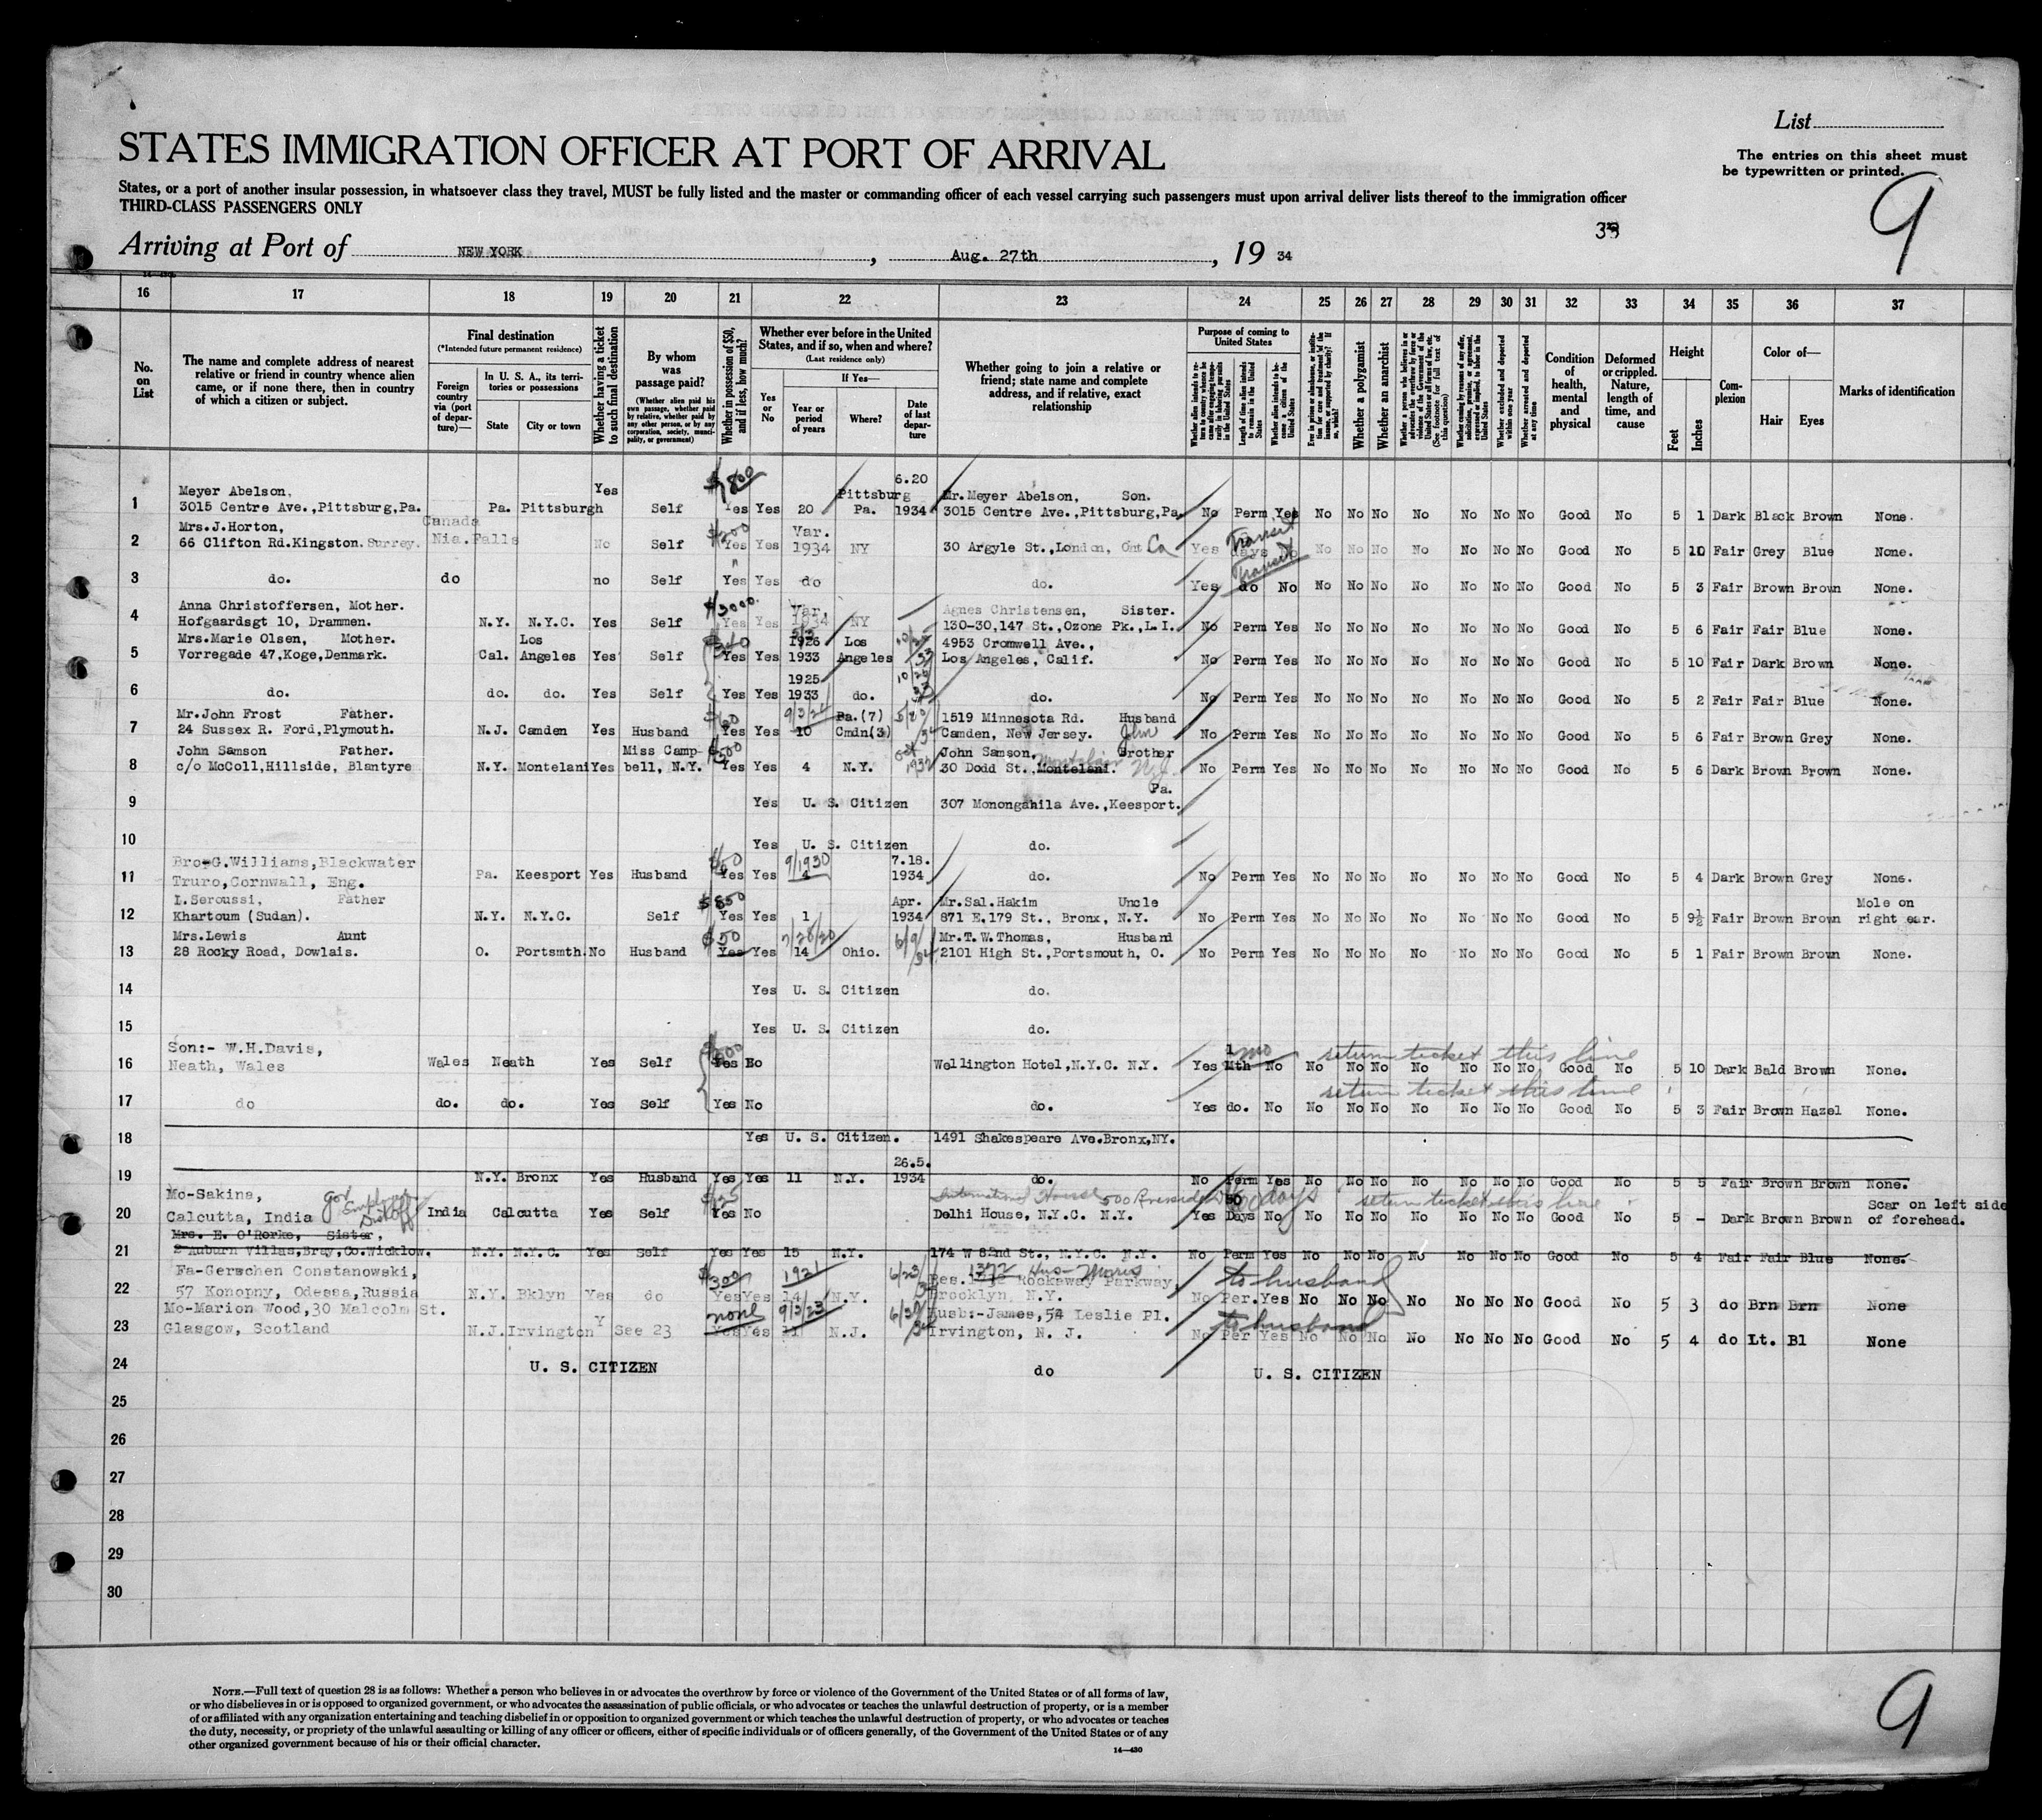 List
STATES IMMIGRATION OFFICER AT PORT OF ARRIVAL
The entries on this sheet must
be typewritten or printed.
States, or a port of another insular possession, in whatsoever class they travel, MUST be fully listed and the master or commanding officer of each vessel carrying such passengers must upon arrival deliver lists thereof to the immigration officer
THIRD-CLASS PASSENGERS ONLY
9
Arriving at Port of NEW YORK, Aug. 27th, 19 34
16 17 18 19 20 21 22 23 24 25 26 27 28 29 30 31 32 33 34 35 36 37
No. on List
The name and complete address of nearest relative or friend in country whence alien came, or if none there, then in country of which a citizen or subject.
Final destination
(*Intended future permanent residence)
Foreign country via (port of departure)—
In U. S. A., its territories or possessions
State
City or town
Whether having a ticket to such final destination
By whom was passage paid?
(Whether alien paid his own passage, whether paid by relative, whether paid by any other person, or by any corporation, society, municipality, or government)
Whether in possession of $50, and if less, how much?
Whether ever before in the United States, and if so, when and where?
(Last residence only)
Yes or No
If Yes—
Year or period of years
Where?
Date of last departure
Whether going to join a relative or friend; state name and complete address, and if relative, exact relationship
Purpose of coming to United States
Length of time alien intends to remain in the United States
Whether alien intends to become a citizen of the United States
Whether a polygamist
Whether an anarchist
Whether excluded and deported within one year
Whether arrested and deported at any time
Condition of health, mental and physical
Deformed or crippled. Nature, length of time, and cause
Height
Feet
Inches
Complexion
Color of—
Hair
Eyes
Marks of identification
1 Meyer Abelson, Yes $1800 Pittsburg 6.20 Mr. Meyer Abelson, Son.
3015 Centre Ave.,Pittsburg,Pa. Pa. Pittsburgh Self Yes Yes 20 Pa. 1934 3015 Centre Ave.,Pittsburg,Pa. No Perm Yes No No No No No No No Good No 5 1 Dark Black Brown None.
2 Mrs.J.Horton, Canada $200 Var. Transit
66 Clifton Rd.Kingston.Surrey. Nia.Falls No Self Yes Yes 1934 NY 30 Argyle St.,London, Ont Ca Yes days No No No No No No No No Good No 5 10 Fair Grey Blue None.
3 do. do no Self Yes Yes do do. Yes Transit do No No No No No No No No Good No 5 3 Fair Brown Brown None.
4 Anna Christoffersen, Mother. $3000. Var, Agnes Christensen, Sister.
Hofgaardsgt 10, Drammen. N.Y. N.Y.C. Yes Self Yes Yes 1934 NY 130-30,147 St.,Ozone Pk.,L.I. No Perm Yes No No No No No No No Good No 5 6 Fair Fair Blue None.
5 Mrs.Marie Olsen, Mother. Los 1926 Los 4953 Cromwell Ave.,
Vorregade 47,Koge,Denmark. Cal. Angeles Yes Self Yes Yes 1933 Angeles Los Angeles, Calif. No Perm Yes No No No No No No No Good No 5 10 Fair Dark Brown None.
6 1925
do. do. do. Yes Self Yes Yes 1933 do. do. No Perm Yes No No No No No No No Good No 5 2 Fair Fair Blue None.
7 Mr.John Frost Father. Pa.(7) 1519 Minnesota Rd. Husband
24 Sussex R. Ford,Plymouth. N.J. Camden Yes Husband Yes Yes 10 Cmdn(3) Camden, New Jersey. John No Perm Yes No No No No No No No Good No 5 6 Fair Brown Grey None.
8 John Samson Father. Miss Camp- $500 John Samson, Brother
c/o McColl,Hillside, Blantyre N.Y. Montelani Yes bell, N.Y. Yes Yes 4 N.Y. 30 Dodd St.,Montelani. Montclair N.J. No Perm Yes No No No No No No No Good No 5 6 Dark Brown Brown None.
9 Yes U. S. Citizen 307 Monongahila Ave.,Keesport. Pa.
10 Yes U. S. Citizen do.
11 Bro-G.Williams,Blackwater $50 9/1930 7.18.
Truro,Cornwall, Eng. Pa. Keesport Yes Husband Yes Yes 4 1934 do. No Perm Yes No No No No No No No Good No 5 4 Dark Brown Grey None.
12 I.Seroussi, Father $850 Apr. Mr.Sal.Hakim Uncle Mole on
Khartoum (Sudan). N.Y. N.Y.C. Self Yes Yes 1 1934 871 E,179 St., Bronx, N.Y. No Perm Yes No No No No No No No Good No 5 9½ Fair Brown Brown right ear.
13 Mrs.Lewis Aunt $50 7/28/20 6/9/34 Mr.T.W.Thomas, Husband
28 Rocky Road, Dowlais. O. Portsmth. No Husband Yes Yes 14 Ohio. 2101 High St.,Portsmouth, O. No Perm Yes No No No No No No No Good No 5 1 Fair Brown Brown None.
14 Yes U. S. Citizen do.
15 Yes U. S. Citizen do.
16 Son:- W.H.Davis, 1 mo return ticket this line
Neath, Wales Wales Neath Yes Self Yes No Wellington Hotel,N.Y.C. N.Y. Yes Mth No No No No No No No No Good No 5 10 Dark Bald Brown None.
17 return ticket this line
do do. do. Yes Self Yes No do. Yes do. No No No No No No No No Good No 5 3 Fair Brown Hazel None.
18 Yes U. S. Citizen. 1491 Shakespeare Ave.Bronx,NY.
19 26.5.
N.Y. Bronx Yes Husband Yes Yes 11 N.Y. 1934 do. No Perm Yes No No No No No No No Good No 5 5 Fair Brown Brown None.
20 Mo-Sakina, International House 500 Riverside 60 days return ticket this line Scar on left side
Calcutta, India India Calcutta Yes Self Yes No Delhi House, N.Y.C. N.Y. Yes Days No No No No No No No No Good No 5 - Dark Brown Brown of forehead.
21 Mrs. E. O'Rorke, Sister,
2 Auburn Villas,Bray,Co.Wicklow. N.Y. N.Y.C. Yes Self Yes Yes 15 N.Y. 174 W 82nd St., N.Y.C. N.Y. No Perm Yes No No No No No No No Good No 5 4 Fair Fair Blue None.
22 Fa-Gerschen Constanowski, $300 1921 6/23/34 Res. 1372 Rockaway Parkway, Hus- Morris to husband
57 Konopny, Odessa,Russia N.Y. Bklyn Yes do Yes Yes 14 N.Y. Brooklyn, N.Y. No Per. Yes No No No No No No No Good No 5 3 do Brn Brn None
23 Mo-Marion Wood,30 Malcolm St. none 9/3/23 Husb:-James,54 Leslie Pl. to husband
Glasgow, Scotland N.J. Irvington Y See 23 Yes Yes 11 N.J. Irvington, N. J. No Per Yes No No No No No No No Good No 5 4 do Lt. Bl None
24 U. S. CITIZEN do U. S. CITIZEN
25
26
27
28
29
30
NOTE.—Full text of question 28 is as follows: Whether a person who believes in or advocates the overthrow by force or violence of the Government of the United States or of all forms of law,
or who disbelieves in or is opposed to organized government, or who advocates the assassination of public officials, or who advocates or teaches the unlawful destruction of property, or is a member
of or affiliated with any organization entertaining and teaching disbelief in or opposition to organized government or which teaches the unlawful destruction of property, or who advocates or teaches
the duty, necessity, or propriety of the unlawful assaulting or killing of any officer or officers, either of specific individuals or of officers generally, of the Government of the United States or of any
other organized government because of his or their official character.
14—430
9